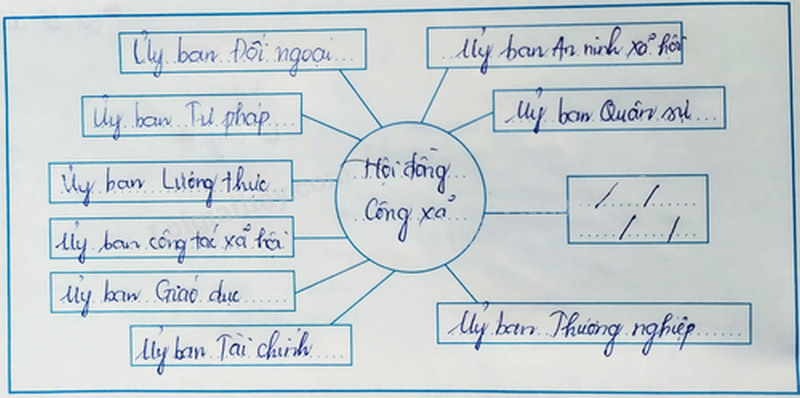 Ủy ban Đối ngoại
Ủy ban An ninh xã hội
Ủy ban Tư pháp
Ủy ban Quân sự
Hội đồng
Công xã
Ủy ban Lương thực
Ủy ban công tác xã hội
Ủy ban Giáo dục
Ủy ban Tài chính
Ủy ban Thương nghiệp